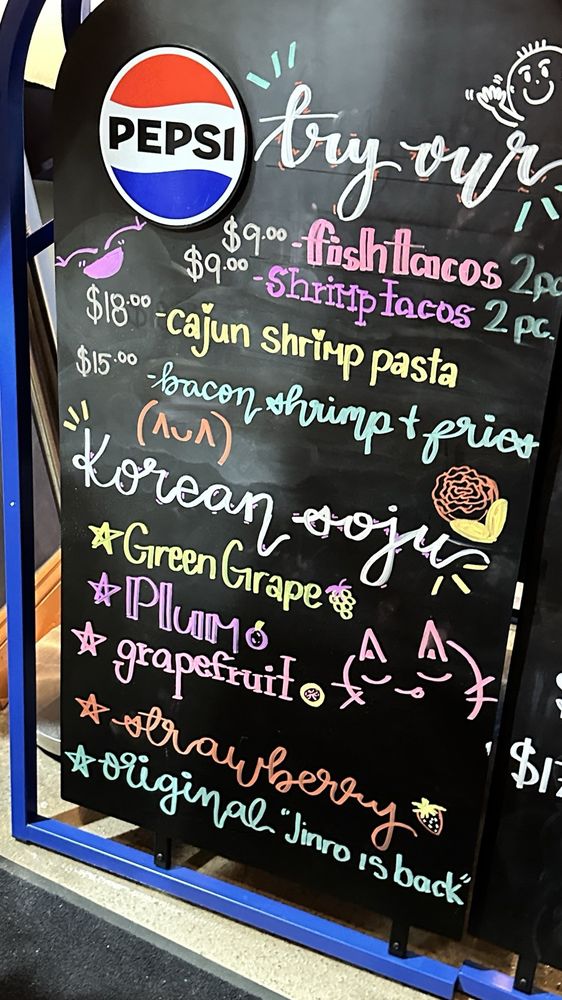 PEPSI
try our
$9.00 - fish tacos 2pc
$9.00 - Shrimp tacos 2 pc.
$18.00 - cajun shrimp pasta
$15.00 - bacon shrimp + fries
Korean soju
Green Grape
Plum
grapefruit
strawberry
original "Jinro is back"